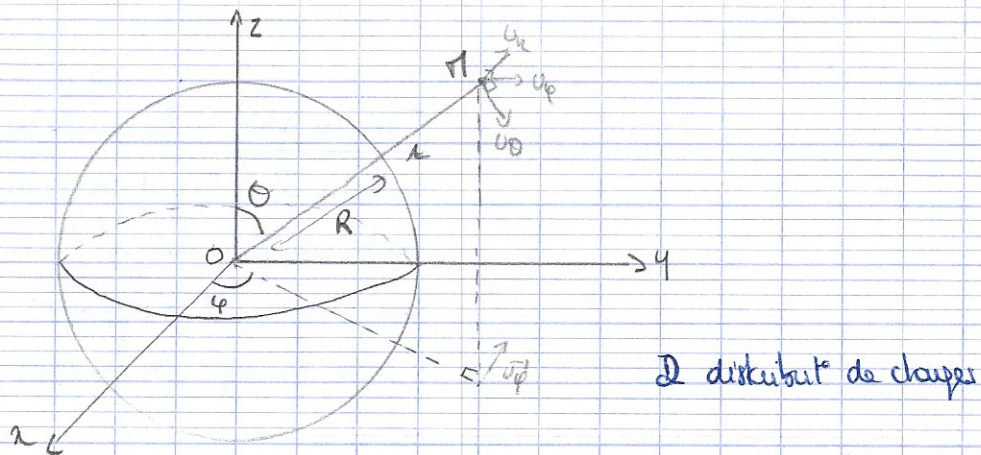 z
M
u_r
u_φ
u_θ
r
θ
R
O
y
φ
u_φ
D distribut° de charges
x